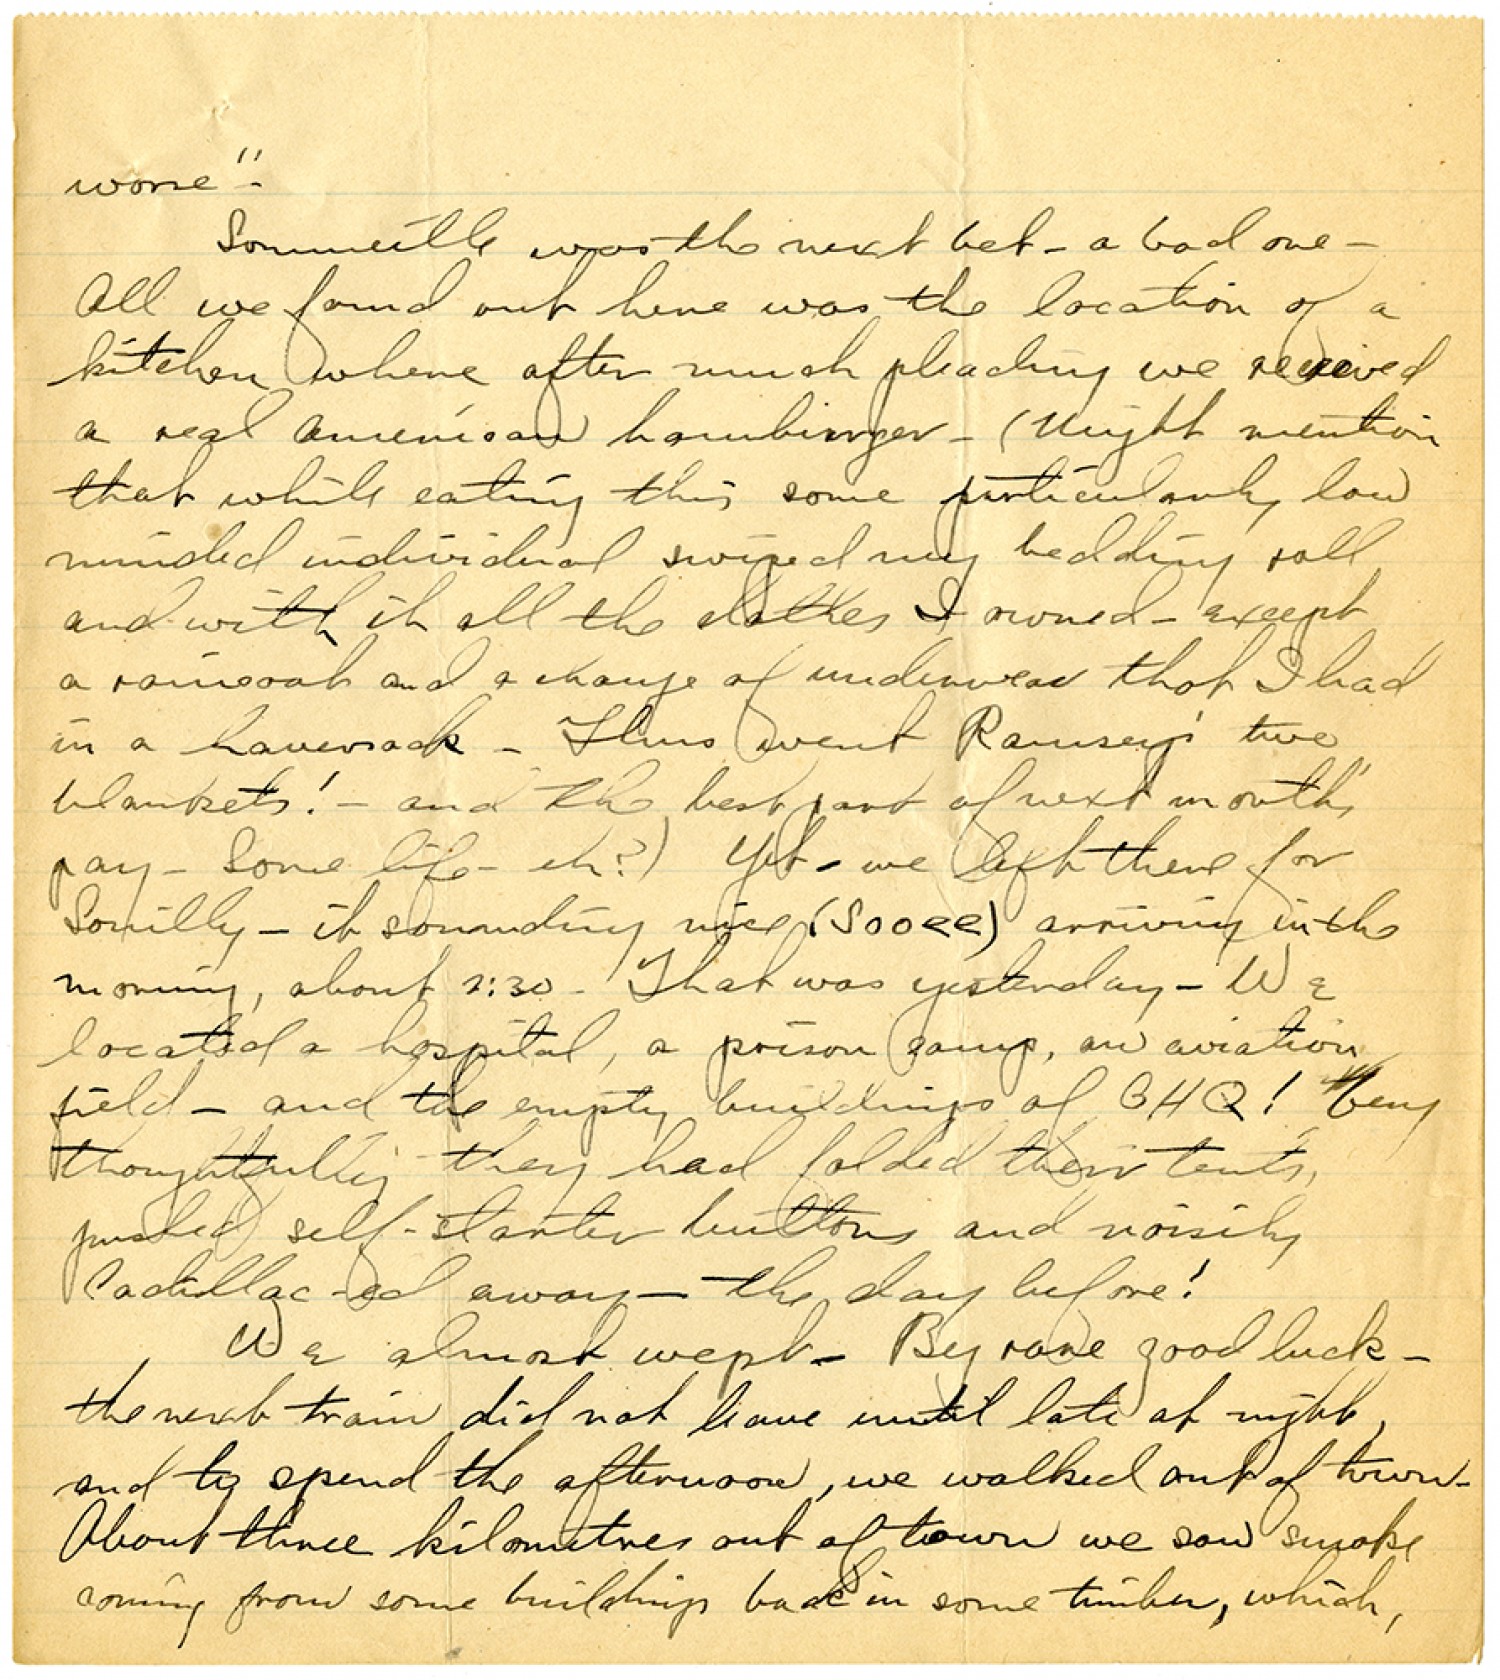 worse"-
Sommeille was the next bet - a bad one -
All we found out here was the location of a
kitchen where after much pleading we received
a real American hamburger - (Might mention
that while eating this some particularly low
minded individual swiped my bedding roll
and with it all the clothes I owned - except
a raincoat and a change of underwear that I had
in a haversack - Thus went Ramsey's two
blankets! - and the best part of next month's
pay - Some life - eh?) Yet - we left there for
Souilly - it sounding nice (Sooee) arriving in the
morning, about 2:30 - That was yesterday - We
located a hospital, a prison camp, an aviation
field - and the empty buildings of GHQ! Very
thoughtfully they had folded their tents,
pushed self-starter buttons and noisily
Cadillac-ed away - the day before!
We almost wept - By rare good luck -
the next train did not leave until late at night,
and to spend the afternoon, we walked out of town -
About three kilometres out of town we saw smoke
coming from some buildings back in some timber, which,